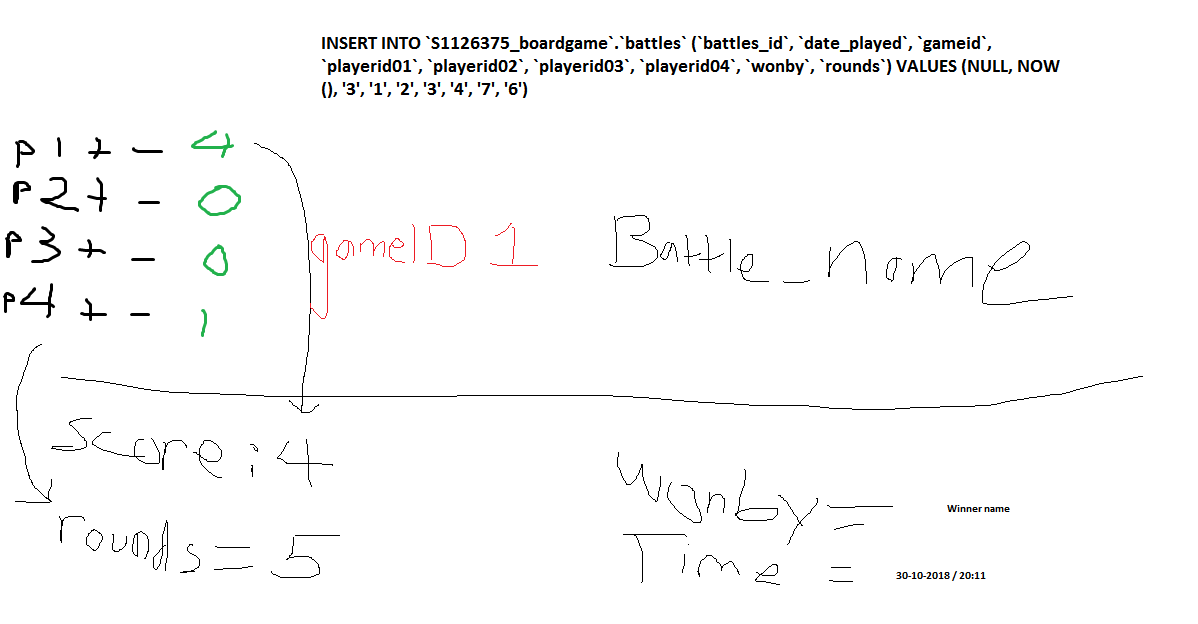 INSERT INTO `S1126375_boardgame`.`battles` (`battles_id`, `date_played`, `gameid`,
`playerid01`, `playerid02`, `playerid03`, `playerid04`, `wonby`, `rounds`) VALUES (NULL, NOW
(), '3', '1', '2', '3', '4', '7', '6')
p1 + - 4
P2 + - 0
P3 + - 0
P4 + - 1
gameID 1
Battle_name
Score: 4
rounds = 5
Wonby = Winner name
Time = 30-10-2018 / 20:11